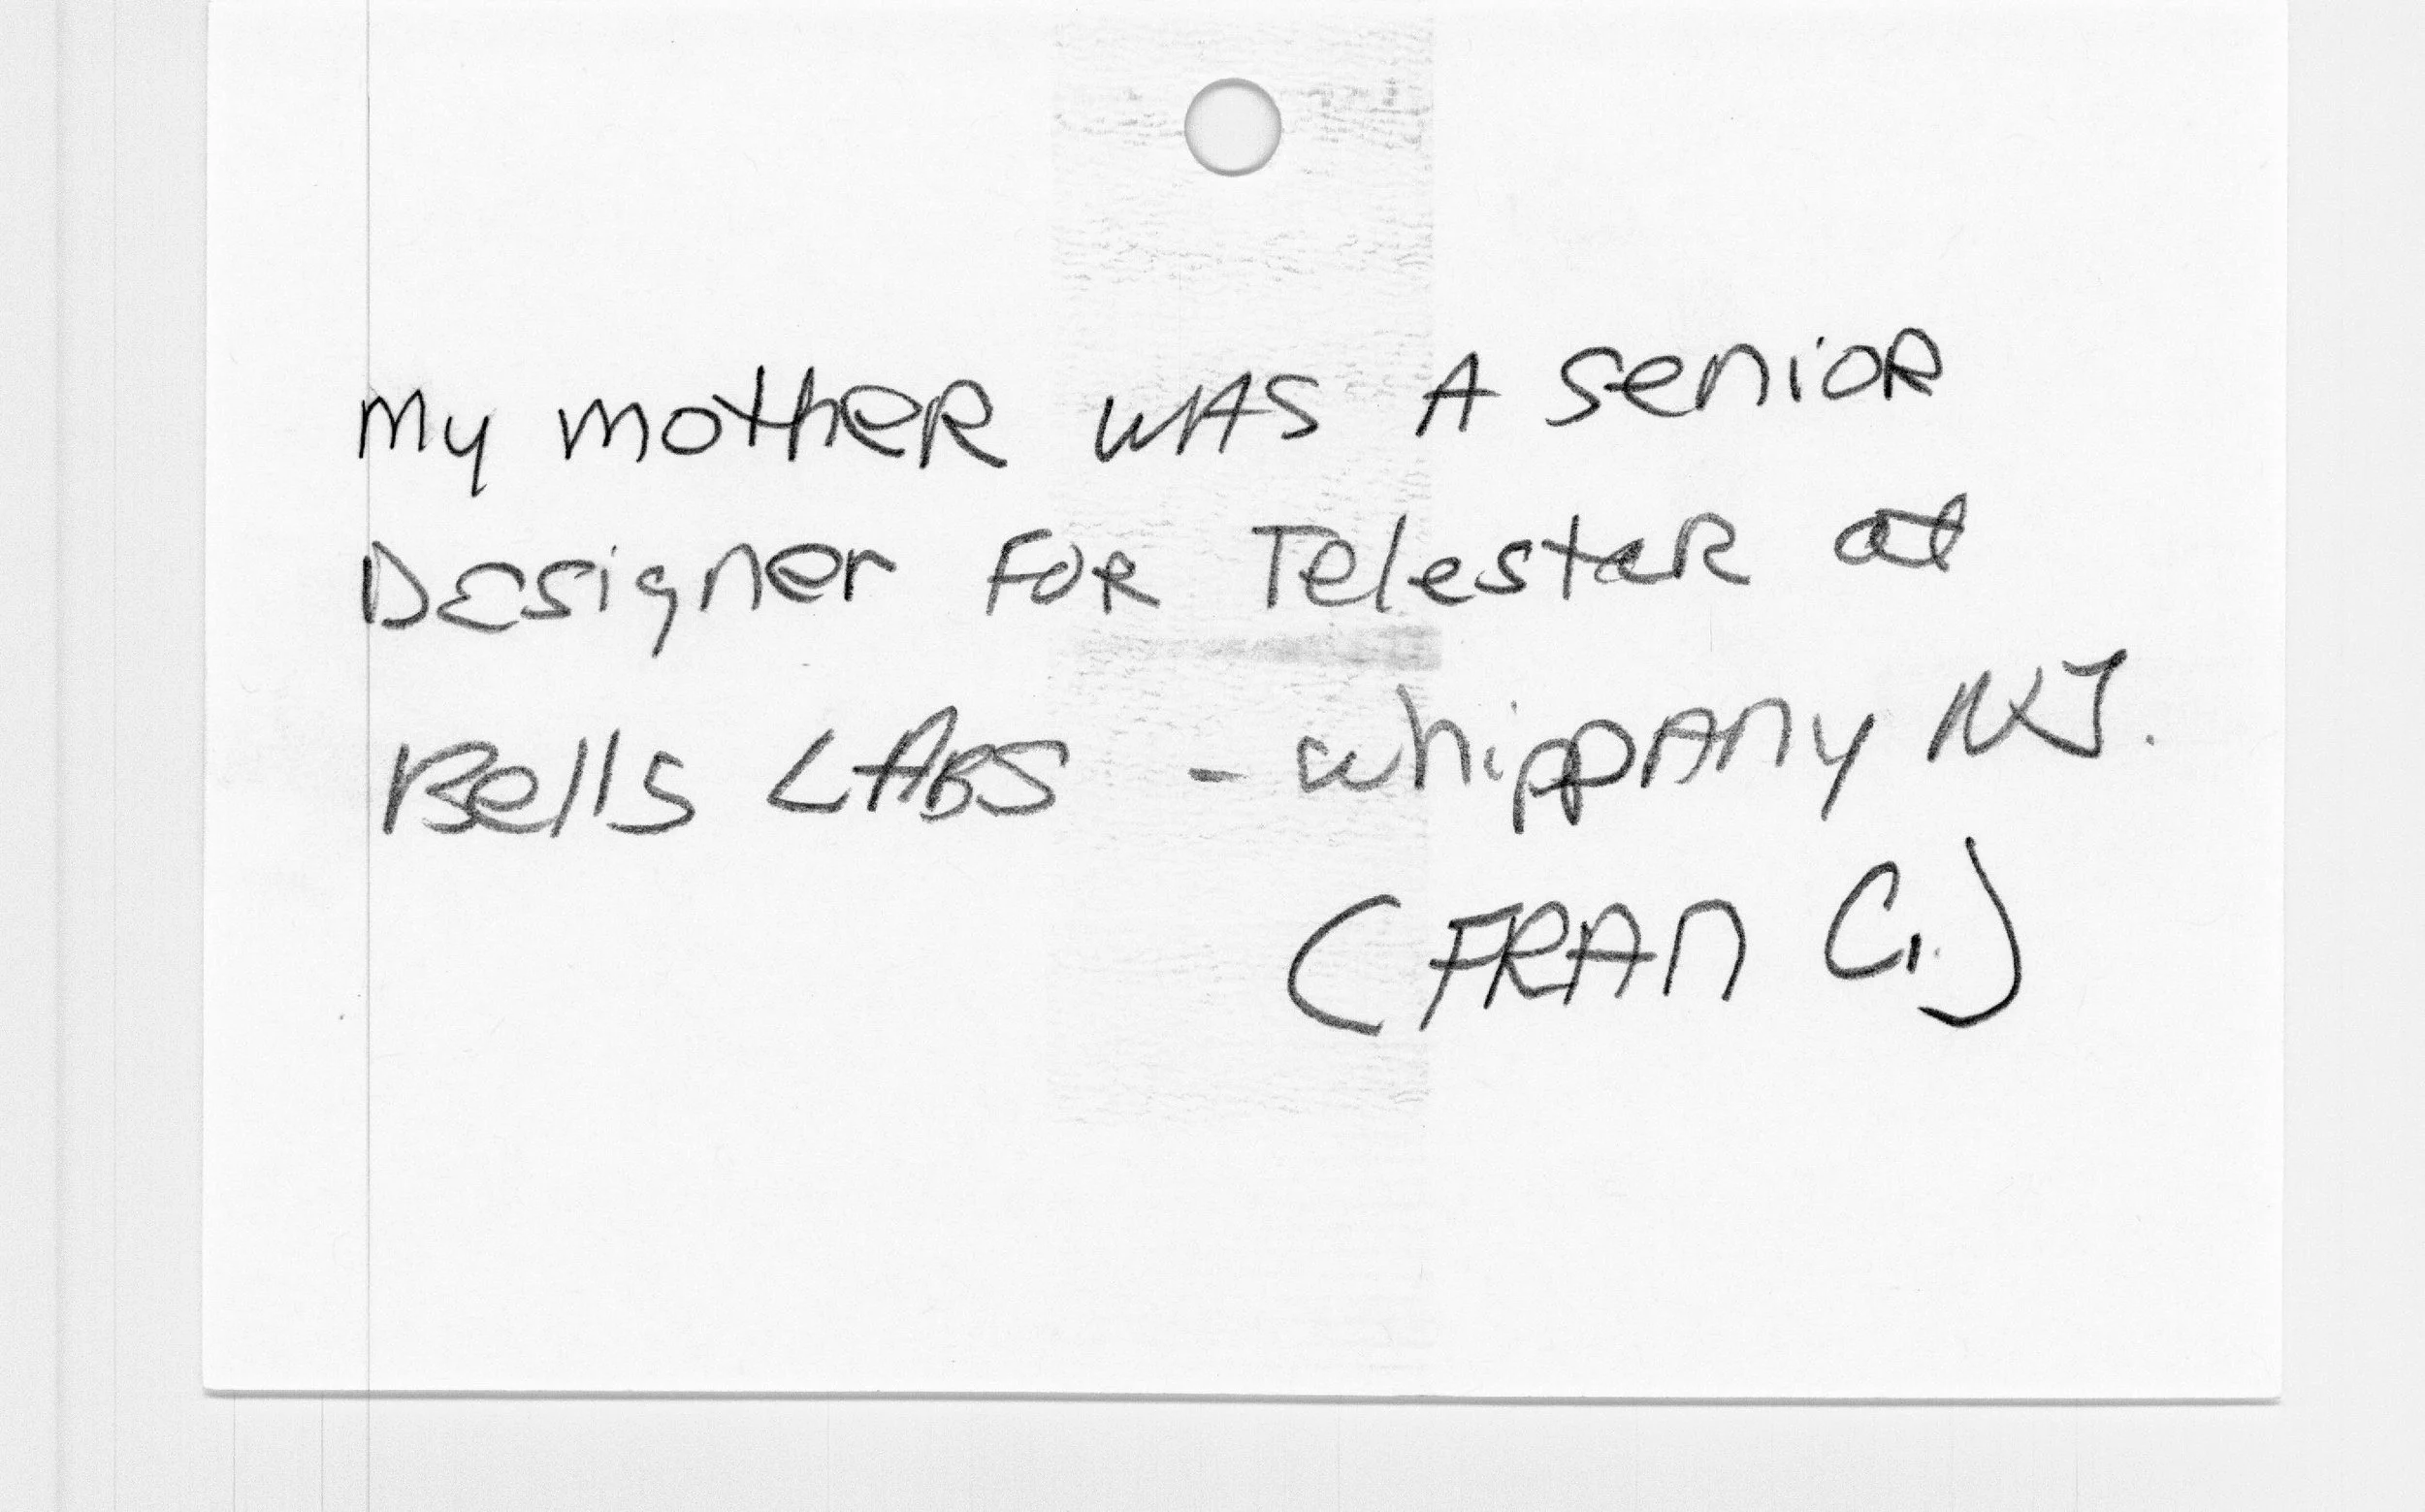 My motheR WAS A SenioR
DEsigner FOR TelestaR at
Bells LABS - whippAny NJ.
(FRAN C.)